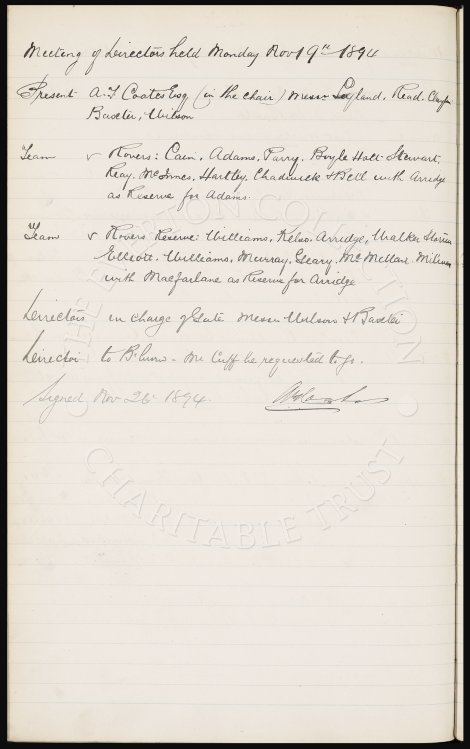 Meeting of Directors held Monday Nov 19th 1894
Present A.T. Coates Esq (in the chair) Messrs Leyland, Read, Clayton
Baxter, Wilson
Team v Rovers: Cain, Adams, Parry, Boyle Holt Stewart,
Reay, McInnes, Hartley, Chadwick & Bell with Arridge
as Reserve for Adams.
Team v Rovers Reserve: Williams, Kelso, Arridge, Walker Storrier
Elliott. Williams, Murray, Geary, McMillan, Milward
with Macfarlane as Reserve for Arridge
Directors in charge of Gate Messrs Wilson & Baxter
Director to B'burn - Mr Cuff be requested to go.
Signed Nov 26 1894.
THE EVERTON COLLECTION
CHARITABLE TRUST